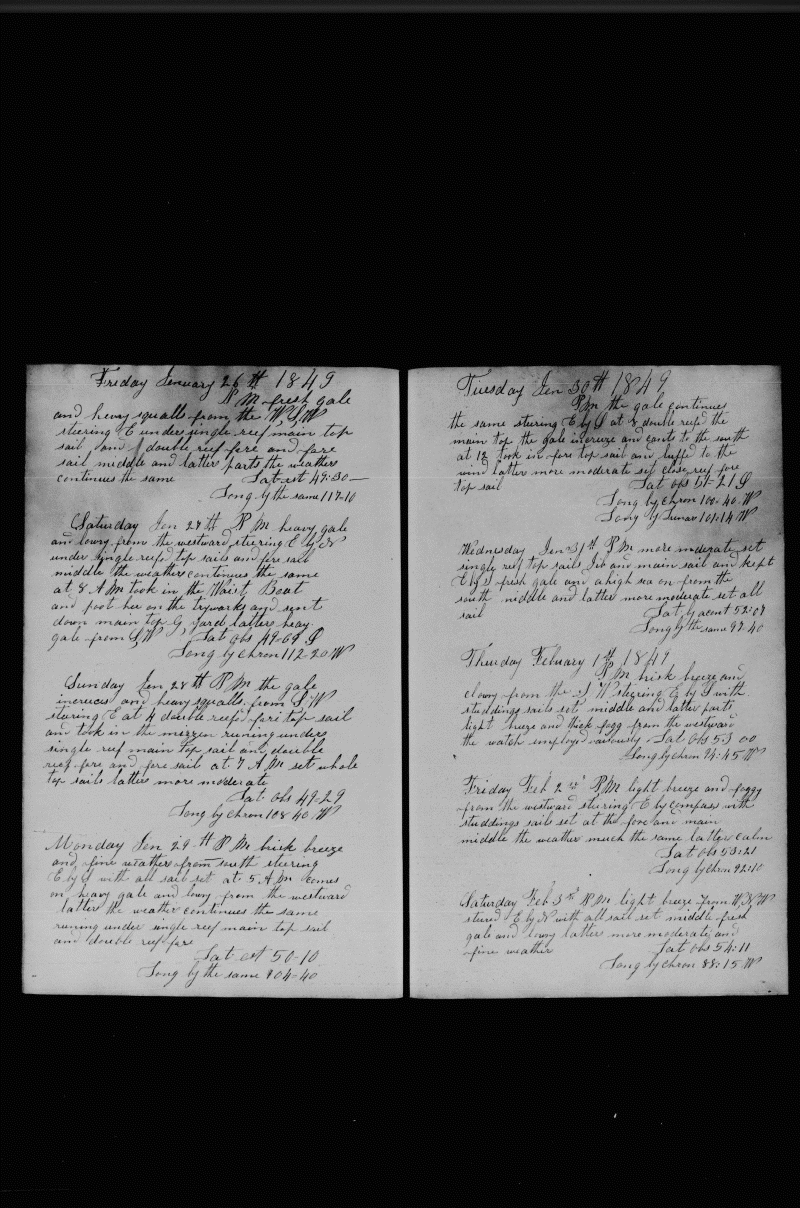 Friday Jenuary 26 th 1849
P M fresh gale
and heavy squalls from the W S W
steering E under single reef main top
sail and double reef fore and fore
sail middle and latter parts the weather
continues the same Lat est 49-30
Long by the same 117-10
Saturday Jen 27 th P M heavy gale
and lowry from the westward steering E by N
under single reefd top sails and fore sail
middle the weather continues the same
at 8 A M took in the Waist Boat
and poot her on the tryworks and sent
down main top G yard latters heay
gale from S W Lat obs 49-09 S
Long by chron 112-20 W
Sunday Jen 28 th P M the gale
increces and heavy squalls from S W
staring E at 4 double reefd fore top sail
and took in the mezzen runing under
single reef main top sail and double
reef fore and fore sail at 7 A M set whole
top sails latters more moderate
Lat obs 49-29
Long by chron 108 40 W
Monday Jen 29 th P M brisk breeze
and fine weather from south steering
E by S with all sail set at 5 A M comes
on heavy gale and lowry from the westward
latter the weather continues the same
runing under single reef main top sail
and double reef fore
Lat est 50-10
Long by the same 104-40
Tuesday Jen 30 th 1849
P M the gale continues
the same stering E by S at 8 double reefd the
main top the gale increeze and cants to the south
at 12 took in fore top sail and luffd to the
wind latter more moderate set close reef fore
top sail Lat obs 51-21 S
Long by chron 100:40 W
Long by Lunar 101:14 W
Wednesday Jen 31 th P M more moderate set
single reef top sails Jib and main sail and kept
E by S fresh gale and a high sea on from the
south middle and latter more moderate set all
sail Lat by acont 52:07
Long by the same 97-40
Thusday Febuary 1 st 1849
P M brisk breeze and
clowy from the S W steering E by S with
studdings sails set middle and latter parts
light breeze and thick fogg from the westward
the watch employd variously Lat obs 53 00
Long by chron 94:45 W
Friday Feb 2 nd P M light breeze and foggy
from the westward steering E by compass with
studdings sails set at the fore and main
middle the weather much the same latter calm
Lat obs 53:21
Long by chron 92:10
Saturday Feb 3 rd P M light breeze from W N W
stered E by N with all sail set middle fresh
gale and lowry latters more moderate and
fine weather Lat obs 54:11
Long by chron 88:15 W